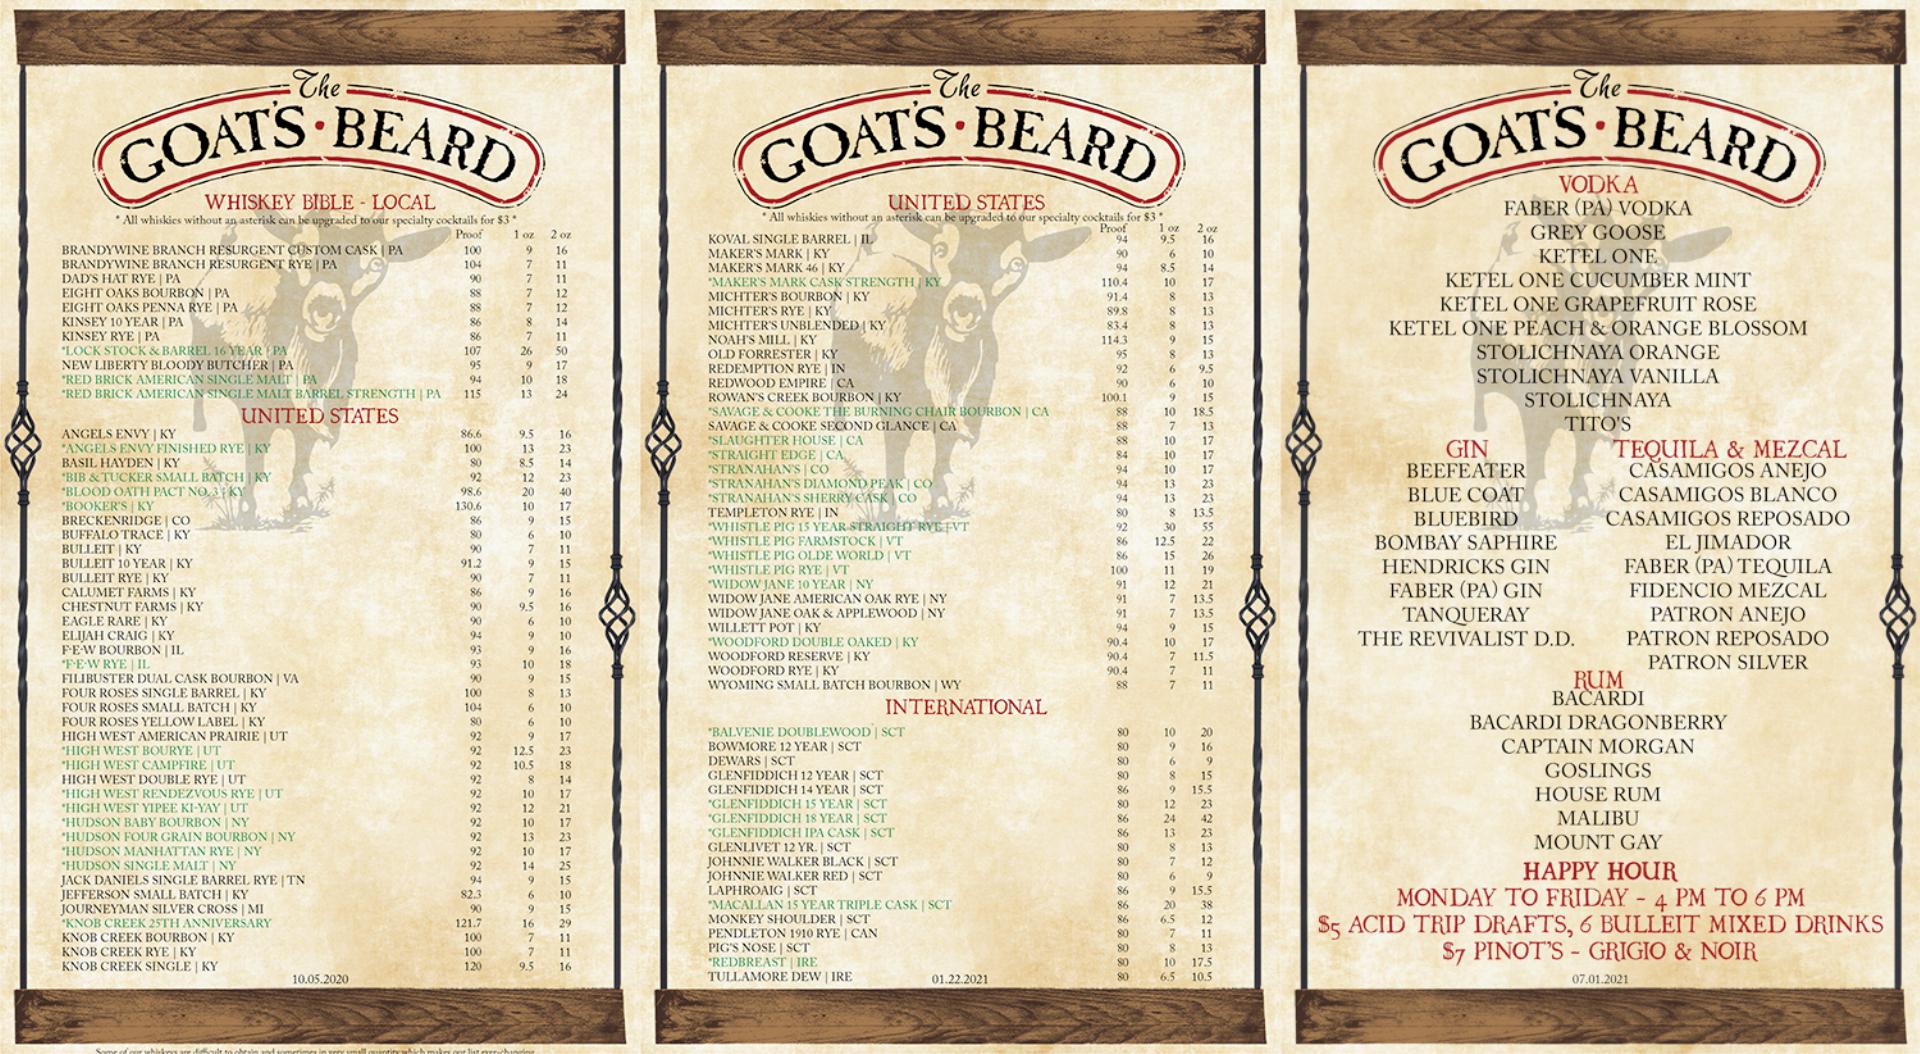 The
GOAT'S · BEARD
WHISKEY BIBLE - LOCAL
* All whiskies without an asterisk can be upgraded to our specialty cocktails for $3 *
Proof 1 oz 2 oz
BRANDYWINE BRANCH RESURGENT CUSTOM CASK | PA 100 9 16
BRANDYWINE BRANCH RESURGENT RYE | PA 104 7 11
DAD'S HAT RYE | PA 90 7 11
EIGHT OAKS BOURBON | PA 88 7 12
EIGHT OAKS PENNA RYE | PA 88 7 12
KINSEY 10 YEAR | PA 86 8 14
KINSEY RYE | PA 86 7 11
*LOCK STOCK & BARREL 16 YEAR | PA 107 26 50
NEW LIBERTY BLOODY BUTCHER | PA 95 9 17
*RED BRICK AMERICAN SINGLE MALT | PA 94 10 18
*RED BRICK AMERICAN SINGLE MALT BARREL STRENGTH | PA 115 13 24
UNITED STATES
ANGELS ENVY | KY 86.6 9.5 16
*ANGELS ENVY FINISHED RYE | KY 100 13 23
BASIL HAYDEN | KY 80 8.5 14
*BIB & TUCKER SMALL BATCH | KY 92 12 23
*BLOOD OATH PACT NO. 3 | KY 98.6 20 40
*BOOKER'S | KY 130.6 10 17
BRECKENRIDGE | CO 86 9 15
BUFFALO TRACE | KY 80 6 10
BULLEIT | KY 90 7 11
BULLEIT 10 YEAR | KY 91.2 9 15
BULLEIT RYE | KY 90 7 11
CALUMET FARMS | KY 86 9 16
CHESTNUT FARMS | KY 90 9.5 16
EAGLE RARE | KY 90 6 10
ELIJAH CRAIG | KY 94 9 10
F·E·W BOURBON | IL 93 9 16
*F·E·W RYE | IL 93 10 18
FILIBUSTER DUAL CASK BOURBON | VA 90 9 15
FOUR ROSES SINGLE BARREL | KY 100 8 13
FOUR ROSES SMALL BATCH | KY 104 6 10
FOUR ROSES YELLOW LABEL | KY 80 6 10
HIGH WEST AMERICAN PRAIRIE | UT 92 9 17
*HIGH WEST BOURYE | UT 92 12.5 23
*HIGH WEST CAMPFIRE | UT 92 10.5 18
HIGH WEST DOUBLE RYE | UT 92 8 14
*HIGH WEST RENDEZVOUS RYE | UT 92 10 17
*HIGH WEST YIPEE KI-YAY | UT 92 12 21
*HUDSON BABY BOURBON | NY 92 10 17
*HUDSON FOUR GRAIN BOURBON | NY 92 13 23
*HUDSON MANHATTAN RYE | NY 92 10 17
*HUDSON SINGLE MALT | NY 92 14 25
JACK DANIELS SINGLE BARREL RYE | TN 94 9 15
JEFFERSON SMALL BATCH | KY 82.3 6 10
JOURNEYMAN SILVER CROSS | MI 90 9 15
*KNOB CREEK 25TH ANNIVERSARY 121.7 16 29
KNOB CREEK BOURBON | KY 100 7 11
KNOB CREEK RYE | KY 100 7 11
KNOB CREEK SINGLE | KY 120 9.5 16
10.05.2020
Some of our whiskeys are difficult to obtain and sometimes in very small quantity which makes our list ever-changing
The
GOAT'S · BEARD
UNITED STATES
* All whiskies without an asterisk can be upgraded to our specialty cocktails for $3 *
Proof 1 oz 2 oz
KOVAL SINGLE BARREL | IL 94 9.5 16
MAKER'S MARK | KY 90 6 10
MAKER'S MARK 46 | KY 94 8.5 14
*MAKER'S MARK CASK STRENGTH | KY 110.4 10 17
MICHTER'S BOURBON | KY 91.4 8 13
MICHTER'S RYE | KY 89.8 8 13
MICHTER'S UNBLENDED | KY 83.4 8 13
NOAH'S MILL | KY 114.3 9 15
OLD FORRESTER | KY 95 8 13
REDEMPTION RYE | IN 92 6 9.5
REDWOOD EMPIRE | CA 90 6 10
ROWAN'S CREEK BOURBON | KY 100.1 9 15
*SAVAGE & COOKE THE BURNING CHAIR BOURBON | CA 88 10 18.5
SAVAGE & COOKE SECOND GLANCE | CA 88 7 13
*SLAUGHTER HOUSE | CA 88 10 17
*STRAIGHT EDGE | CA 84 10 17
*STRANAHAN'S | CO 94 10 17
*STRANAHAN'S DIAMOND PEAK | CO 94 13 23
*STRANAHAN'S SHERRY CASK | CO 94 13 23
TEMPLETON RYE | IN 80 8 13.5
*WHISTLE PIG 15 YEAR STRAIGHT RYE | VT 92 30 55
*WHISTLE PIG FARMSTOCK | VT 86 12.5 22
*WHISTLE PIG OLDE WORLD | VT 86 15 26
*WHISTLE PIG RYE | VT 100 11 19
*WIDOW JANE 10 YEAR | NY 91 12 21
WIDOW JANE AMERICAN OAK RYE | NY 91 7 13.5
WIDOW JANE OAK & APPLEWOOD | NY 91 7 13.5
WILLETT POT | KY 94 9 15
*WOODFORD DOUBLE OAKED | KY 90.4 10 17
WOODFORD RESERVE | KY 90.4 7 11.5
WOODFORD RYE | KY 90.4 7 11
WYOMING SMALL BATCH BOURBON | WY 88 7 11
INTERNATIONAL
*BALVENIE DOUBLEWOOD | SCT 80 10 20
BOWMORE 12 YEAR | SCT 80 9 16
DEWARS | SCT 80 6 9
GLENFIDDICH 12 YEAR | SCT 80 8 15
GLENFIDDICH 14 YEAR | SCT 86 9 15.5
*GLENFIDDICH 15 YEAR | SCT 80 12 23
*GLENFIDDICH 18 YEAR | SCT 86 24 42
*GLENFIDDICH IPA CASK | SCT 86 13 23
GLENLIVET 12 YR. | SCT 80 8 13
JOHNNIE WALKER BLACK | SCT 80 7 12
JOHNNIE WALKER RED | SCT 80 6 9
LAPHROAIG | SCT 86 9 15.5
*MACALLAN 15 YEAR TRIPLE CASK | SCT 86 20 38
MONKEY SHOULDER | SCT 86 6.5 12
PENDLETON 1910 RYE | CAN 80 7 11
PIG'S NOSE | SCT 80 8 13
*REDBREAST | IRE 80 10 17.5
TULLAMORE DEW | IRE 80 6.5 10.5
01.22.2021
The
GOAT'S · BEARD
VODKA
FABER (PA) VODKA
GREY GOOSE
KETEL ONE
KETEL ONE CUCUMBER MINT
KETEL ONE GRAPEFRUIT ROSE
KETEL ONE PEACH & ORANGE BLOSSOM
STOLICHNAYA ORANGE
STOLICHNAYA VANILLA
STOLICHNAYA
TITO'S
GIN
BEEFEATER
BLUE COAT
BLUEBIRD
BOMBAY SAPHIRE
HENDRICKS GIN
FABER (PA) GIN
TANQUERAY
THE REVIVALIST D.D.
TEQUILA & MEZCAL
CASAMIGOS ANEJO
CASAMIGOS BLANCO
CASAMIGOS REPOSADO
EL JIMADOR
FABER (PA) TEQUILA
FIDENCIO MEZCAL
PATRON ANEJO
PATRON REPOSADO
PATRON SILVER
RUM
BACARDI
BACARDI DRAGONBERRY
CAPTAIN MORGAN
GOSLINGS
HOUSE RUM
MALIBU
MOUNT GAY
HAPPY HOUR
MONDAY TO FRIDAY - 4 PM TO 6 PM
$5 ACID TRIP DRAFTS, 6 BULLEIT MIXED DRINKS
$7 PINOT'S - GRIGIO & NOIR
07.01.2021